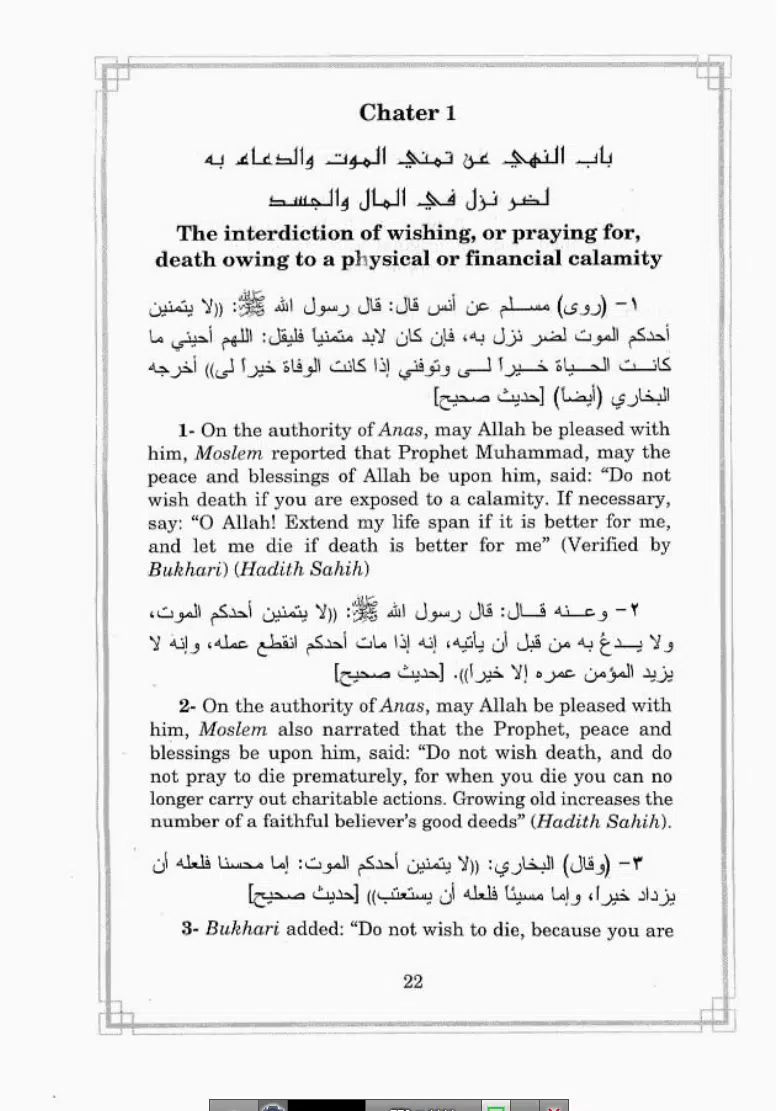 Chater 1
باب النهي عن تمني الموت والدعاء به
لضر نزل في المال والجسد
The interdiction of wishing, or praying for,
death owing to a physical or financial calamity
١- (روى) مسلم عن أنس قال: قال رسول الله ﷺ: ((لا يتمنين
أحدكم الموت لضر نزل به، فإن كان لابد متمنياً فليقل: اللهم أحيني ما
كانت الحياة خيراً لى وتوفني إذا كانت الوفاة خيراً لى)) أخرجه
البخاري (أيضاً) [حديث صحيح]
1- On the authority of Anas, may Allah be pleased with
him, Moslem reported that Prophet Muhammad, may the
peace and blessings of Allah be upon him, said: “Do not
wish death if you are exposed to a calamity. If necessary,
say: “O Allah! Extend my life span if it is better for me,
and let me die if death is better for me” (Verified by
Bukhari) (Hadith Sahih)
٢- وعنه قال: قال رسول الله ﷺ: ((لا يتمنين أحدكم الموت،
ولا يدعُ به من قبل أن يأتيه، إنه إذا مات أحدكم انقطع عمله، وإنه لا
يزيد المؤمن عمره إلا خيراً)). [حديث صحيح]
2- On the authority of Anas, may Allah be pleased with
him, Moslem also narrated that the Prophet, peace and
blessings be upon him, said: “Do not wish death, and do
not pray to die prematurely, for when you die you can no
longer carry out charitable actions. Growing old increases the
number of a faithful believer’s good deeds” (Hadith Sahih).
٣- (وقال) البخاري: ((لا يتمنين أحدكم الموت: إما محسنا فلعله أن
يزداد خيراً، وإما مسيئاً فلعله أن يستعتب)) [حديث صحيح]
3- Bukhari added: “Do not wish to die, because you are
22